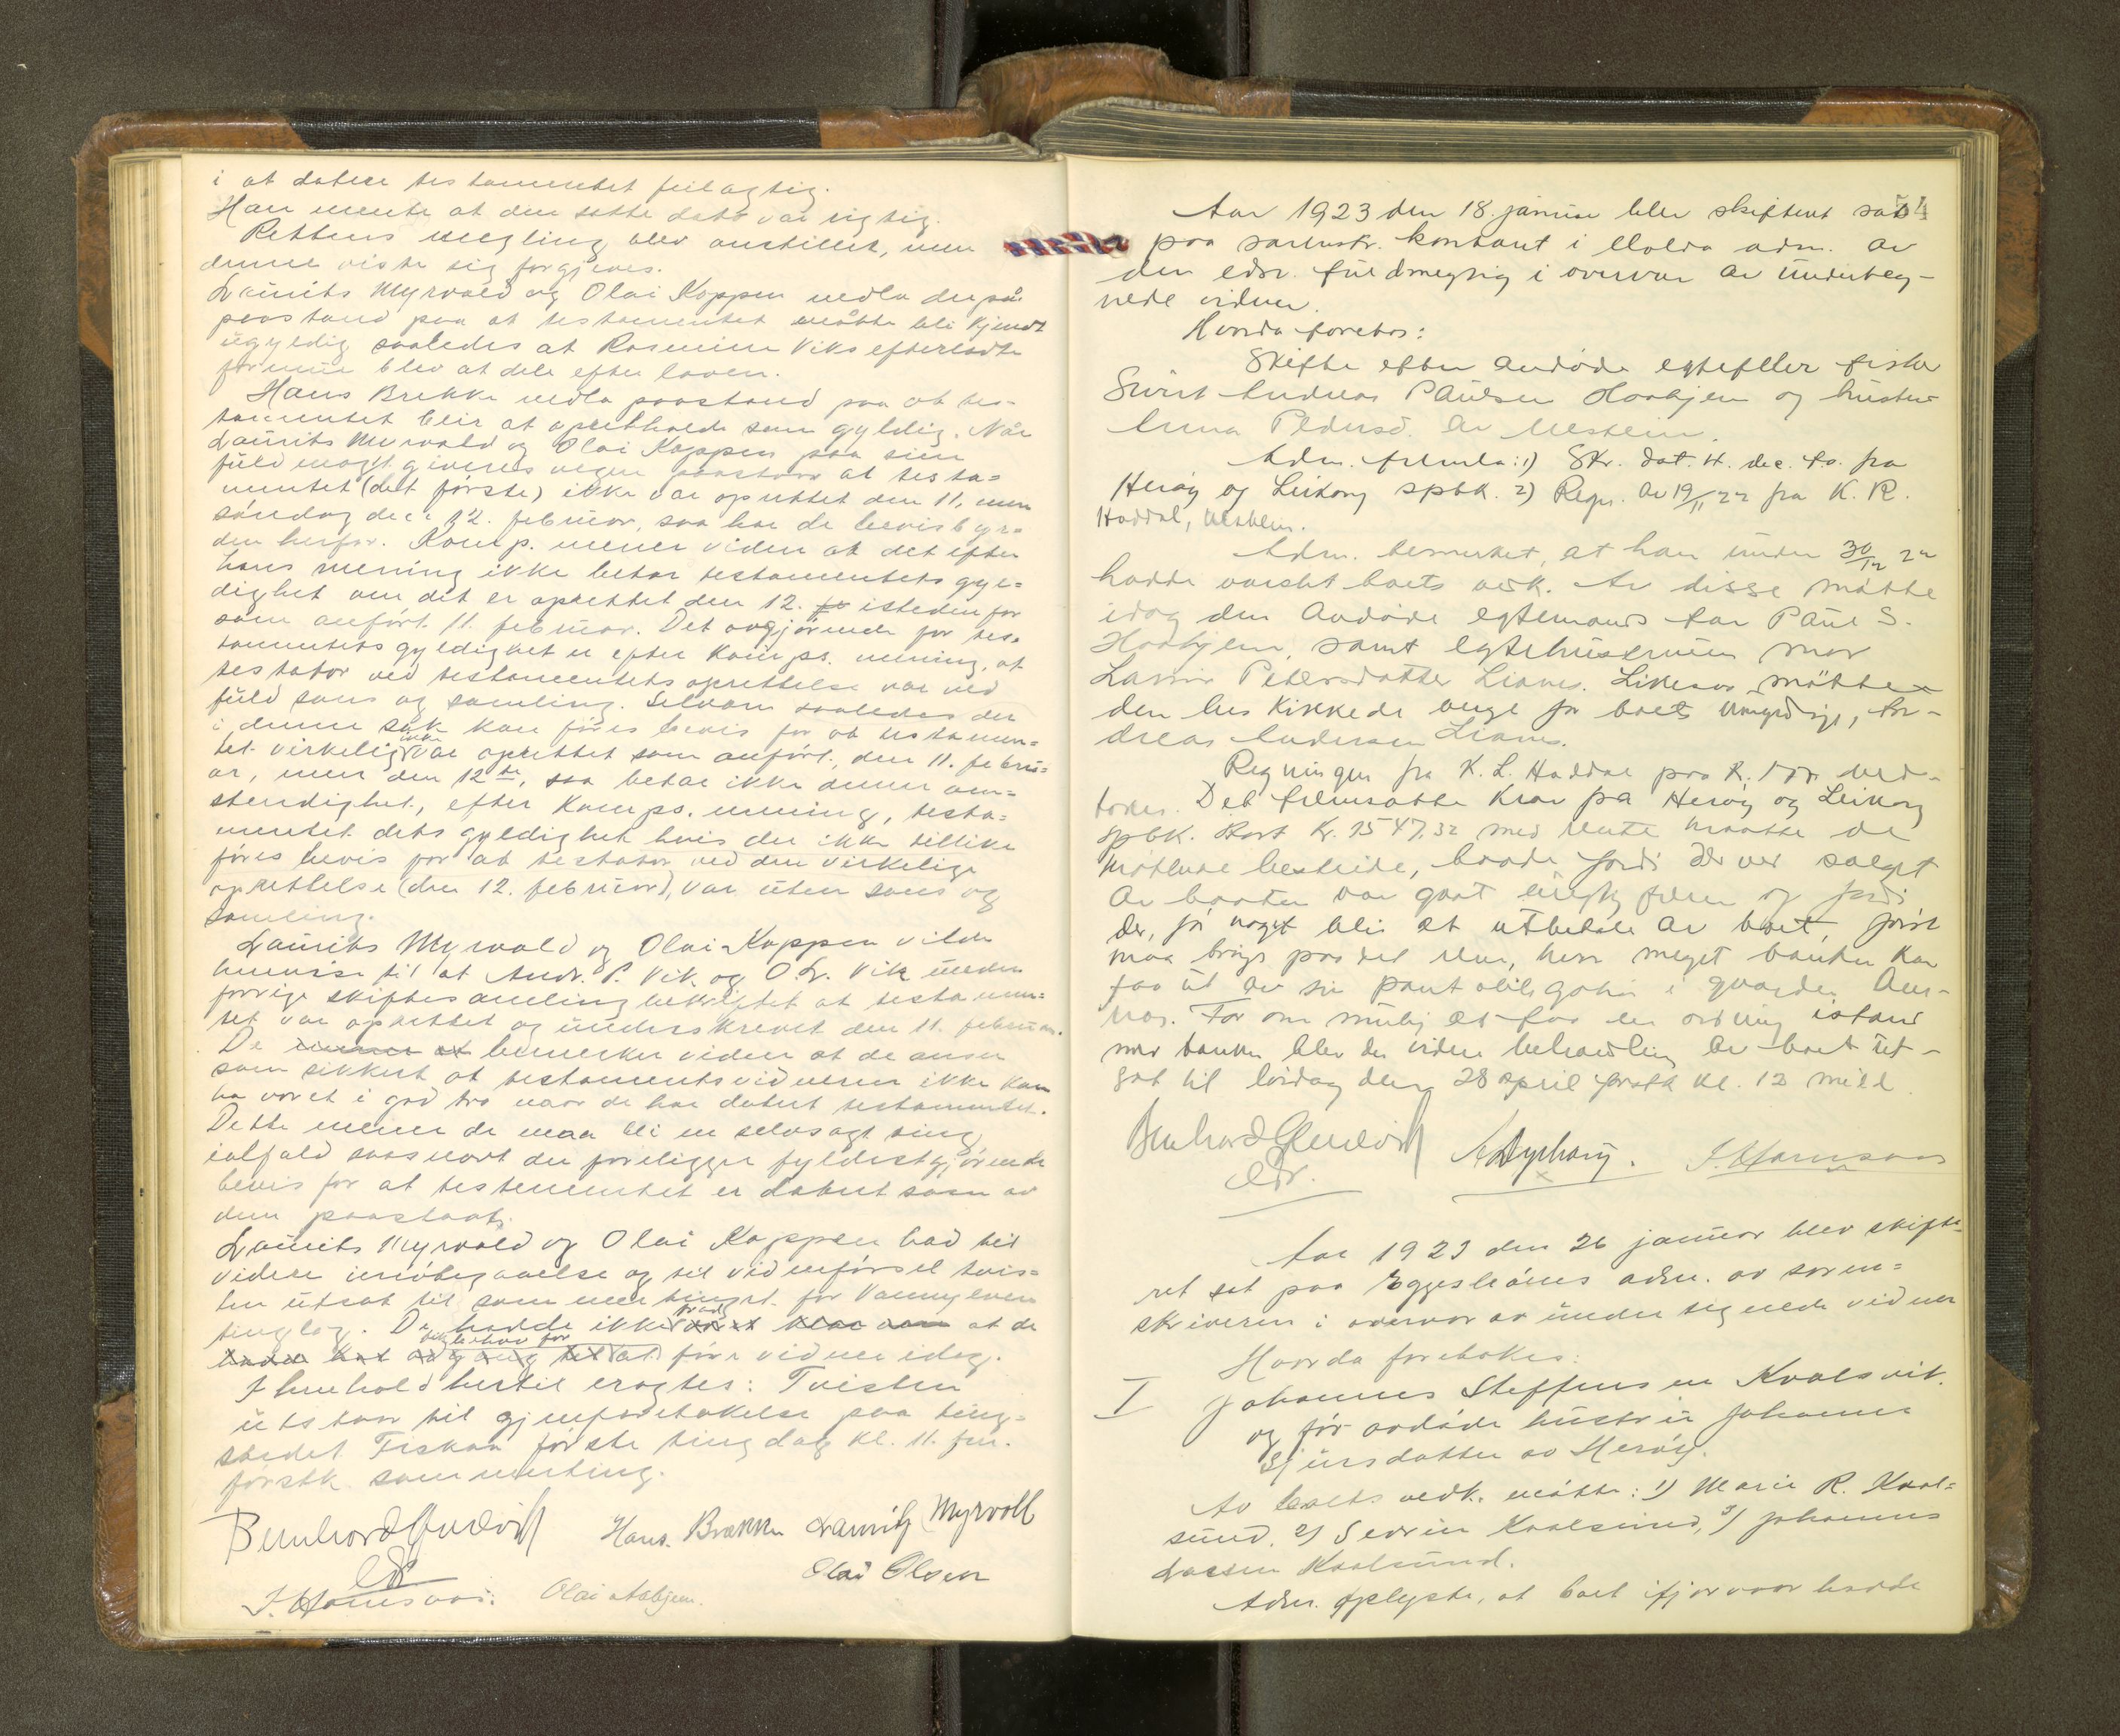 i at datere testamentet feilagtig.
Han mente at den satte dato var rigtig.
Rettens megling blev anstillet, men
denne viste sig forgjæves.
Laurits Myrvold og Olai Koppen nedla derpaa
paastand paa at testamentet måtte bli kjendt
ugyldig saaledes at Rasmine Viks efterladte
formue blev at dele efter loven.
Hans Brekke nedla paastand paa at tes-
tamentet blir at opretholde som gyldig. Når
Laurits Myrvold og Olai Koppen paa sine
fuldmagtgiveres vegne paastaar at testa=
mentet (det første) ikke var oprettet den 11. men
søndag den 12. februar, saa har de bevisbyr=
den herfor. Komp. mener viden at det efter
hans mening ikke betar testamentets gyl=
dighet om det er oprettet den 12. istedenfor
som anført 11. februar. Det avgjørende for tes=
tamentets gyldighet er efter Komps. mening, at
testator ved testamentets oprettelse var ved
fuld sans og samling. Selvom saaledes der
i denne sak kan føres bevis for at testamen=
tet virkelig ikke var oprettet som anført, den 11. febru=
ar, men den 12te, saa betar ikke denne om=
stendighet, efter Komps. mening, testa=
mentet dets gyldighet hvis der ikke tillike
føres bevis for at testator ved den virkelige
oprettelse (den 12. februar), var uten sans og
samling.
Laurits Myrvold og Olai Koppen vilde
henvise til at Andr. P. Vik og O. L. Vik under
forrige skiftesamling bekræftet at testamen=
tet var oprettet og underskrevet den 11. februar.
De mener at bemerker viden at de anser
som sikkert at testamentsvidnerne ikke kan
ha voret i god tro naar de har datert testamentet.
Dette mener de maa bli en selvsagt ting
ialfald saasnart der foreligger fyldestgjørende
bevis for at testementet er datert som av
dem paastaat.
Laurits Myrvold og Olai Koppen bad tvis=
videre imøtegaaelse og til vidneførsel
ten utsat til sommertinget for Vannylven
tinglag. De hadde ikke at de
at føre vidner idag.
I henhold hertil eragtes: Tvisten
utstaar til gjenforetakelse paa ting=
stedet Fiskaa første tingdag kl. 11. fm.
førstk. sommerting.
Hans. Brekke Lauritz Myrvoll
Olai Olsen
J. Hansson. Olai Aabjem.
54
Aar 1923 den 18. januar blev skifteret sat
paa sorenskr. kontant i Volda adm. av
den edsv. fuldmegtig i overvær av underteg-
nede vidner.
Hvorda foretoges:
Skifte efter avdøde egtefeller fisker
Sivert Andreas Paulsen Haabjem og hustru
Anna Pedersd. av Ulstein.
Adm. fremla: 1) Skr. dat. 4. dec. f.a. fra
Herøy og Leikong spbk. 2) Regn. av 19/11 22 fra K. R.
Haddal, Ulstein.
Adm. bemerket, at han under 30/12 22
hadde varslet boets vedk. Av disse møtte
idag den avdøde egtemands far Paul S.
Haabjem, samt egtehustruens mor
Lavine Petersdatter Lianes. Likesaa møtte
den beskikkede verge for boets umyndige, An-
dreas Andersen Lianes.
Regningen fra K. L. Haddal paa kr. ved-
toges. Det fremsatte krav fra Herøy og Leikong
spbk. stort kr. 1547.32 med rente maatte de
møtende bestride, baade fordi der ved salget
av baaten var gaat frem og fordi
der, før noget blir at utbetale av boet, først
maa bringes paa det rene, hvor meget banken kan
faa ut av sin pantobligation i gaarden
For om mulig at faa en ordning istand
med banken blev den videre behandling av boet ut-
sat til lørdag den 28 april førstk. kl. 12 midd.
J. Hansson
Aar 1923 den 26 januar blev skifte=
ret sat paa Eggesbønes adm. av soren=
skriveren i overvær av undertegnede vidner
Hvorda foretokes:
I Johannes Steffensen Kvalsvik.
og før avdøde hustru Johanne
Sjursdatter av Herøy.
Av boets vedk. møtte: 1) Marie R. Kval=
sund, 2) Severin Kvalsund, 3) Johannes
Larsen Kvalsund.
Adm. oplyste, at boet ifjor vaar hadde